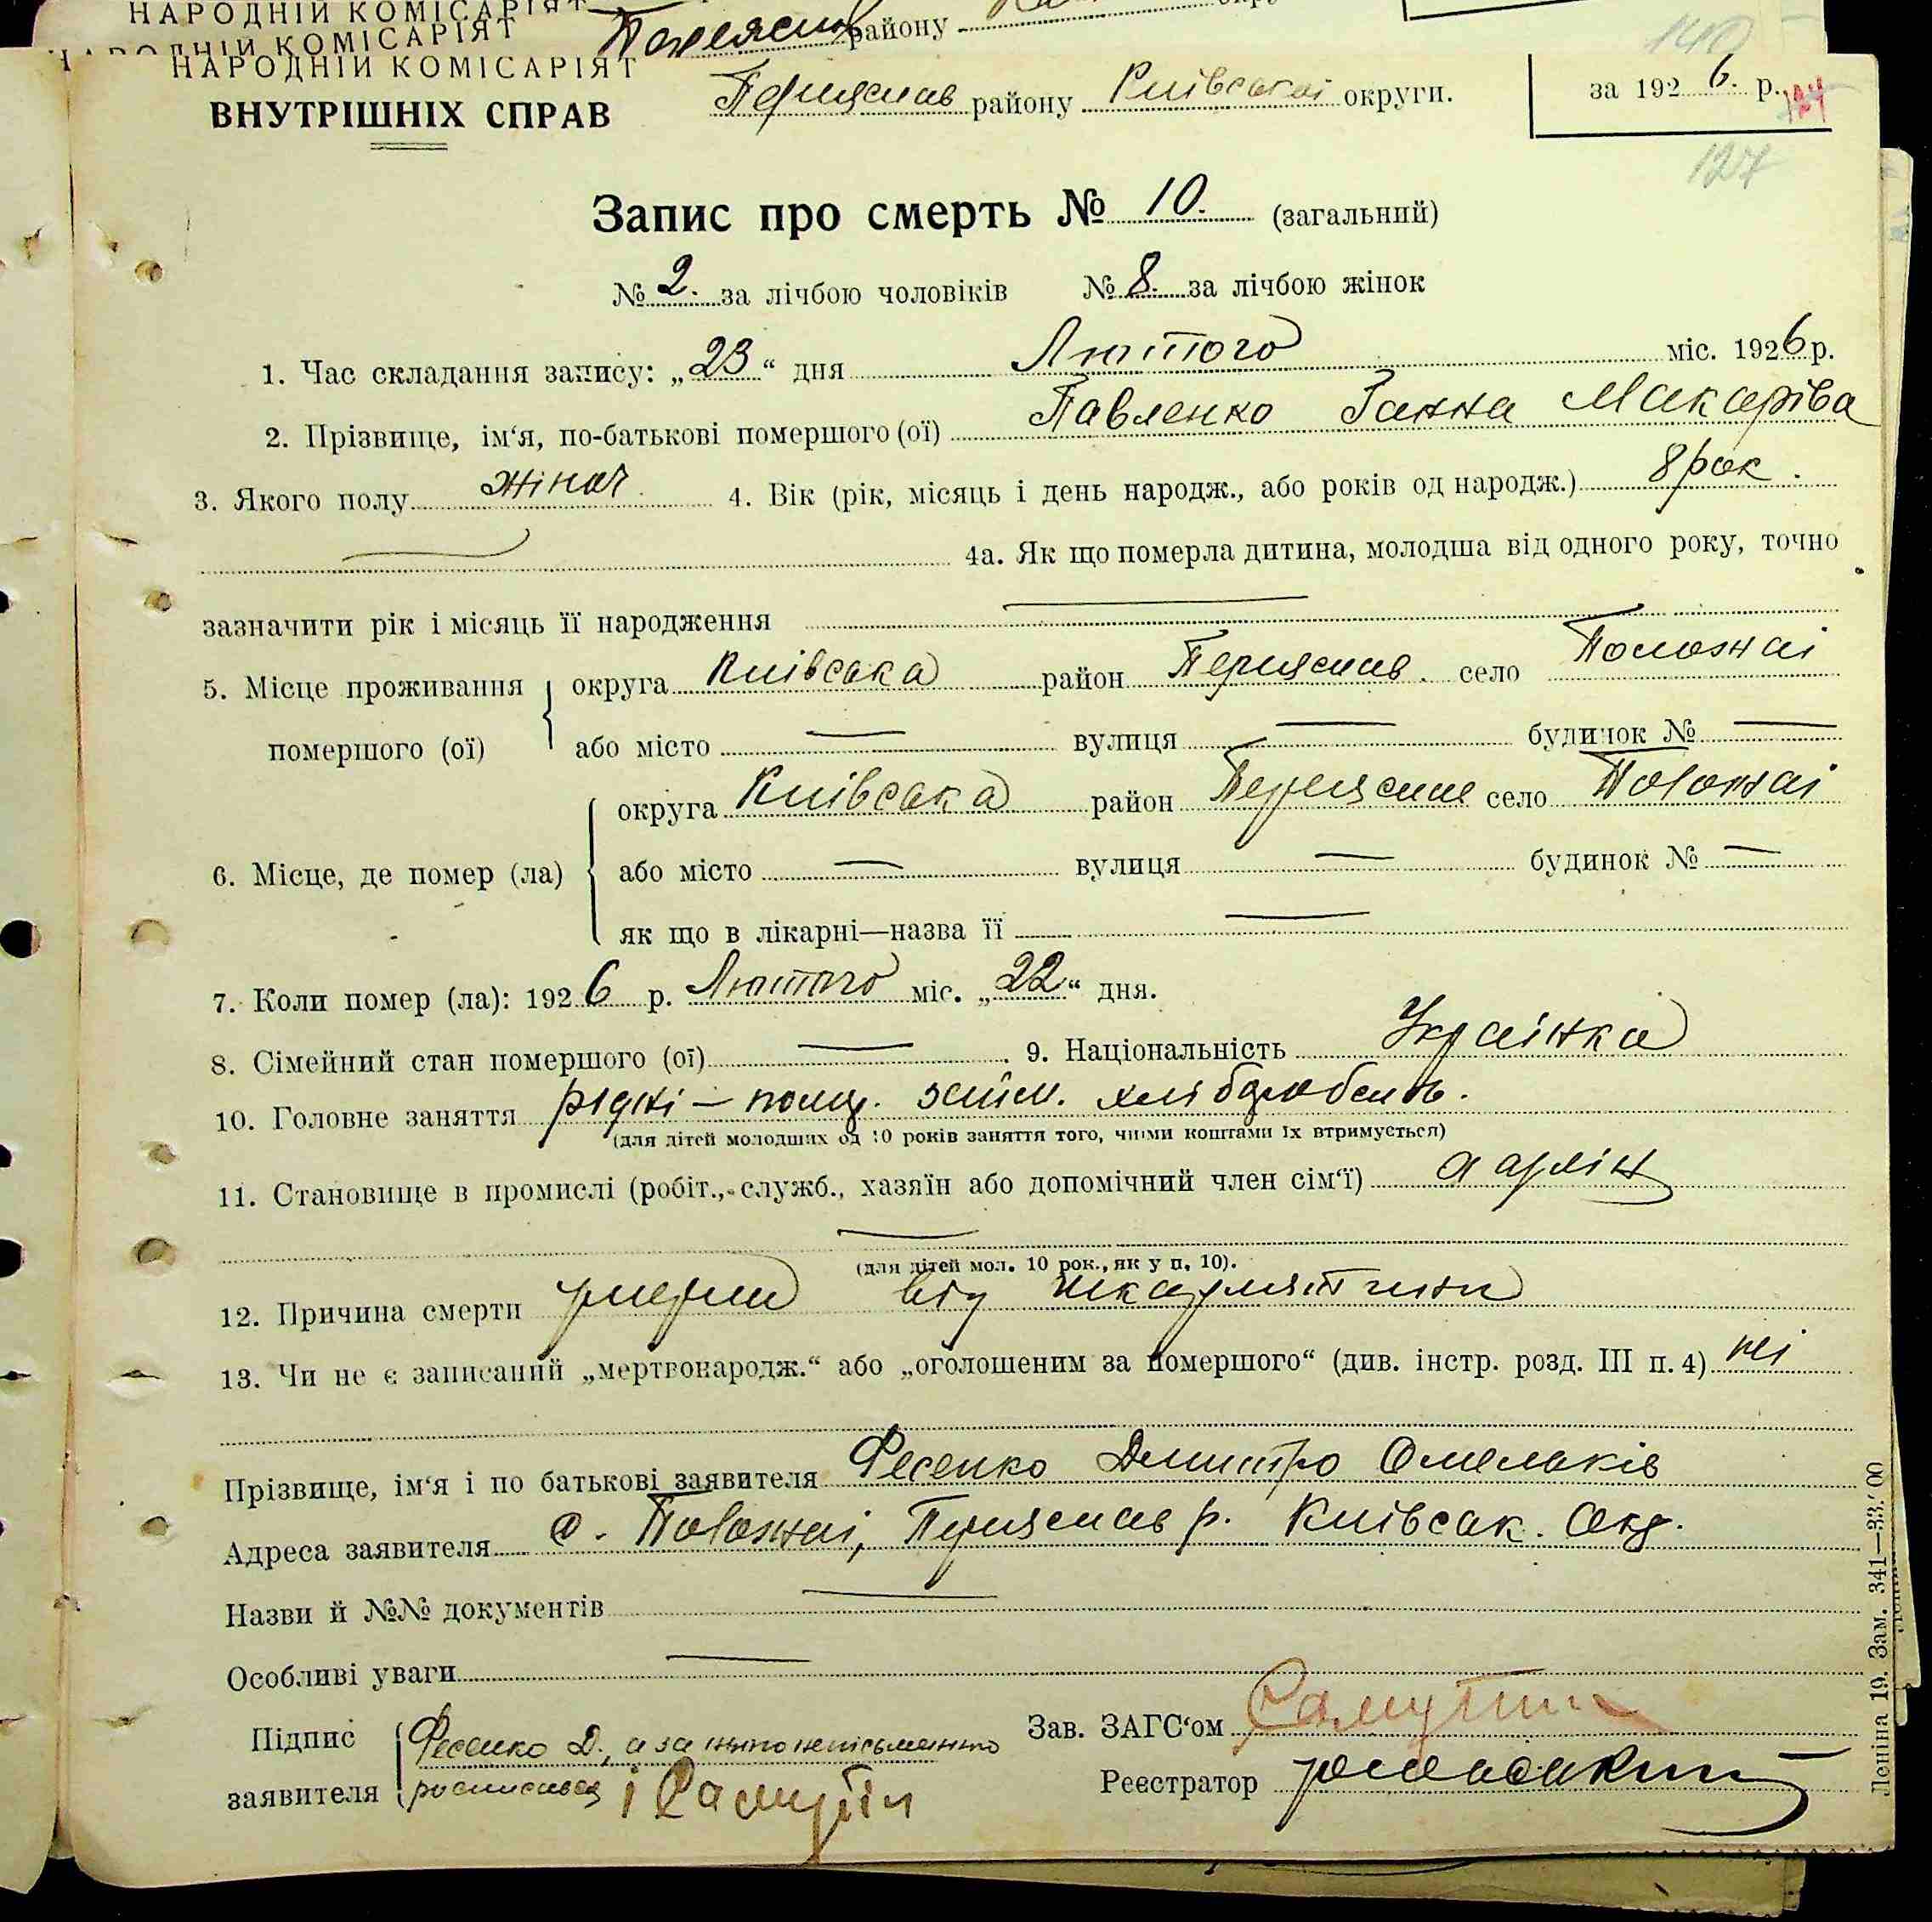 НАРОДНІЙ КОМІСАРІЯТ
НАРОДНІЙ КОМІСАРІЯТ
району
140
НАРОДНІЙ КОМІСАРІЯТ
ВНУТРІШНІХ СПРАВ
Переяслав району Київської округи.
за 1926. р.
124
127
Запис про смерть № 10. (загальний)
№ 2. за лічбою чоловіків № 8. за лічбою жінок
1. Час складання запису: „23“ дня Лютого міс. 1926 р.
2. Прізвище, ім‘я, по-батькові помершого (ої) Павленко Ганна Макаріва
3. Якого полу жіноч. 4. Вік (рік, місяць і день народж., або років од народж.) 8 рок.
4а. Як що померла дитина, молодша від одного року, точно
зазначити рік і місяць її народження
5. Місце проживання помершого (ої) округа Київська район Переяслав. село Положаї
або місто — вулиця — будинок № —
6. Місце, де помер (ла) округа Київська район Переяслав село Положаї
або місто — вулиця — будинок № —
як що в лікарні—назва її —
7. Коли помер (ла): 1926 р. Лютого міс. „22“ дня.
8. Сімейний стан помершого (ої) — . 9. Національність Українка
10. Головне заняття хлібороб
(для дітей молодших од 10 років заняття того, чиїми коштами їх втримується)
11. Становище в промислі (робіт., служб., хазяїн або допомічний член сім‘ї)
(для дітей мол. 10 рок., як у п. 10).
12. Причина смерти умерла від шкарлятини
13. Чи не є записаний „мертвонародж.“ або „оголошеним за помершого“ (див. інстр. розд. III п. 4) ні
Прізвище, ім‘я і по батькові заявителя Фесенко Дмитро Омельків
Адреса заявителя с. Положаї, Переяслав р. Київськ. Окр.
Назви й №№ документів —
Особливі уваги —
Підпис заявителя Фесенко Д., а за нього неписьменного
росписався і Самутін
Зав. ЗАГС‘ом Самутін
Реєстратор
Леніна 19. Зам. 341—33.′00